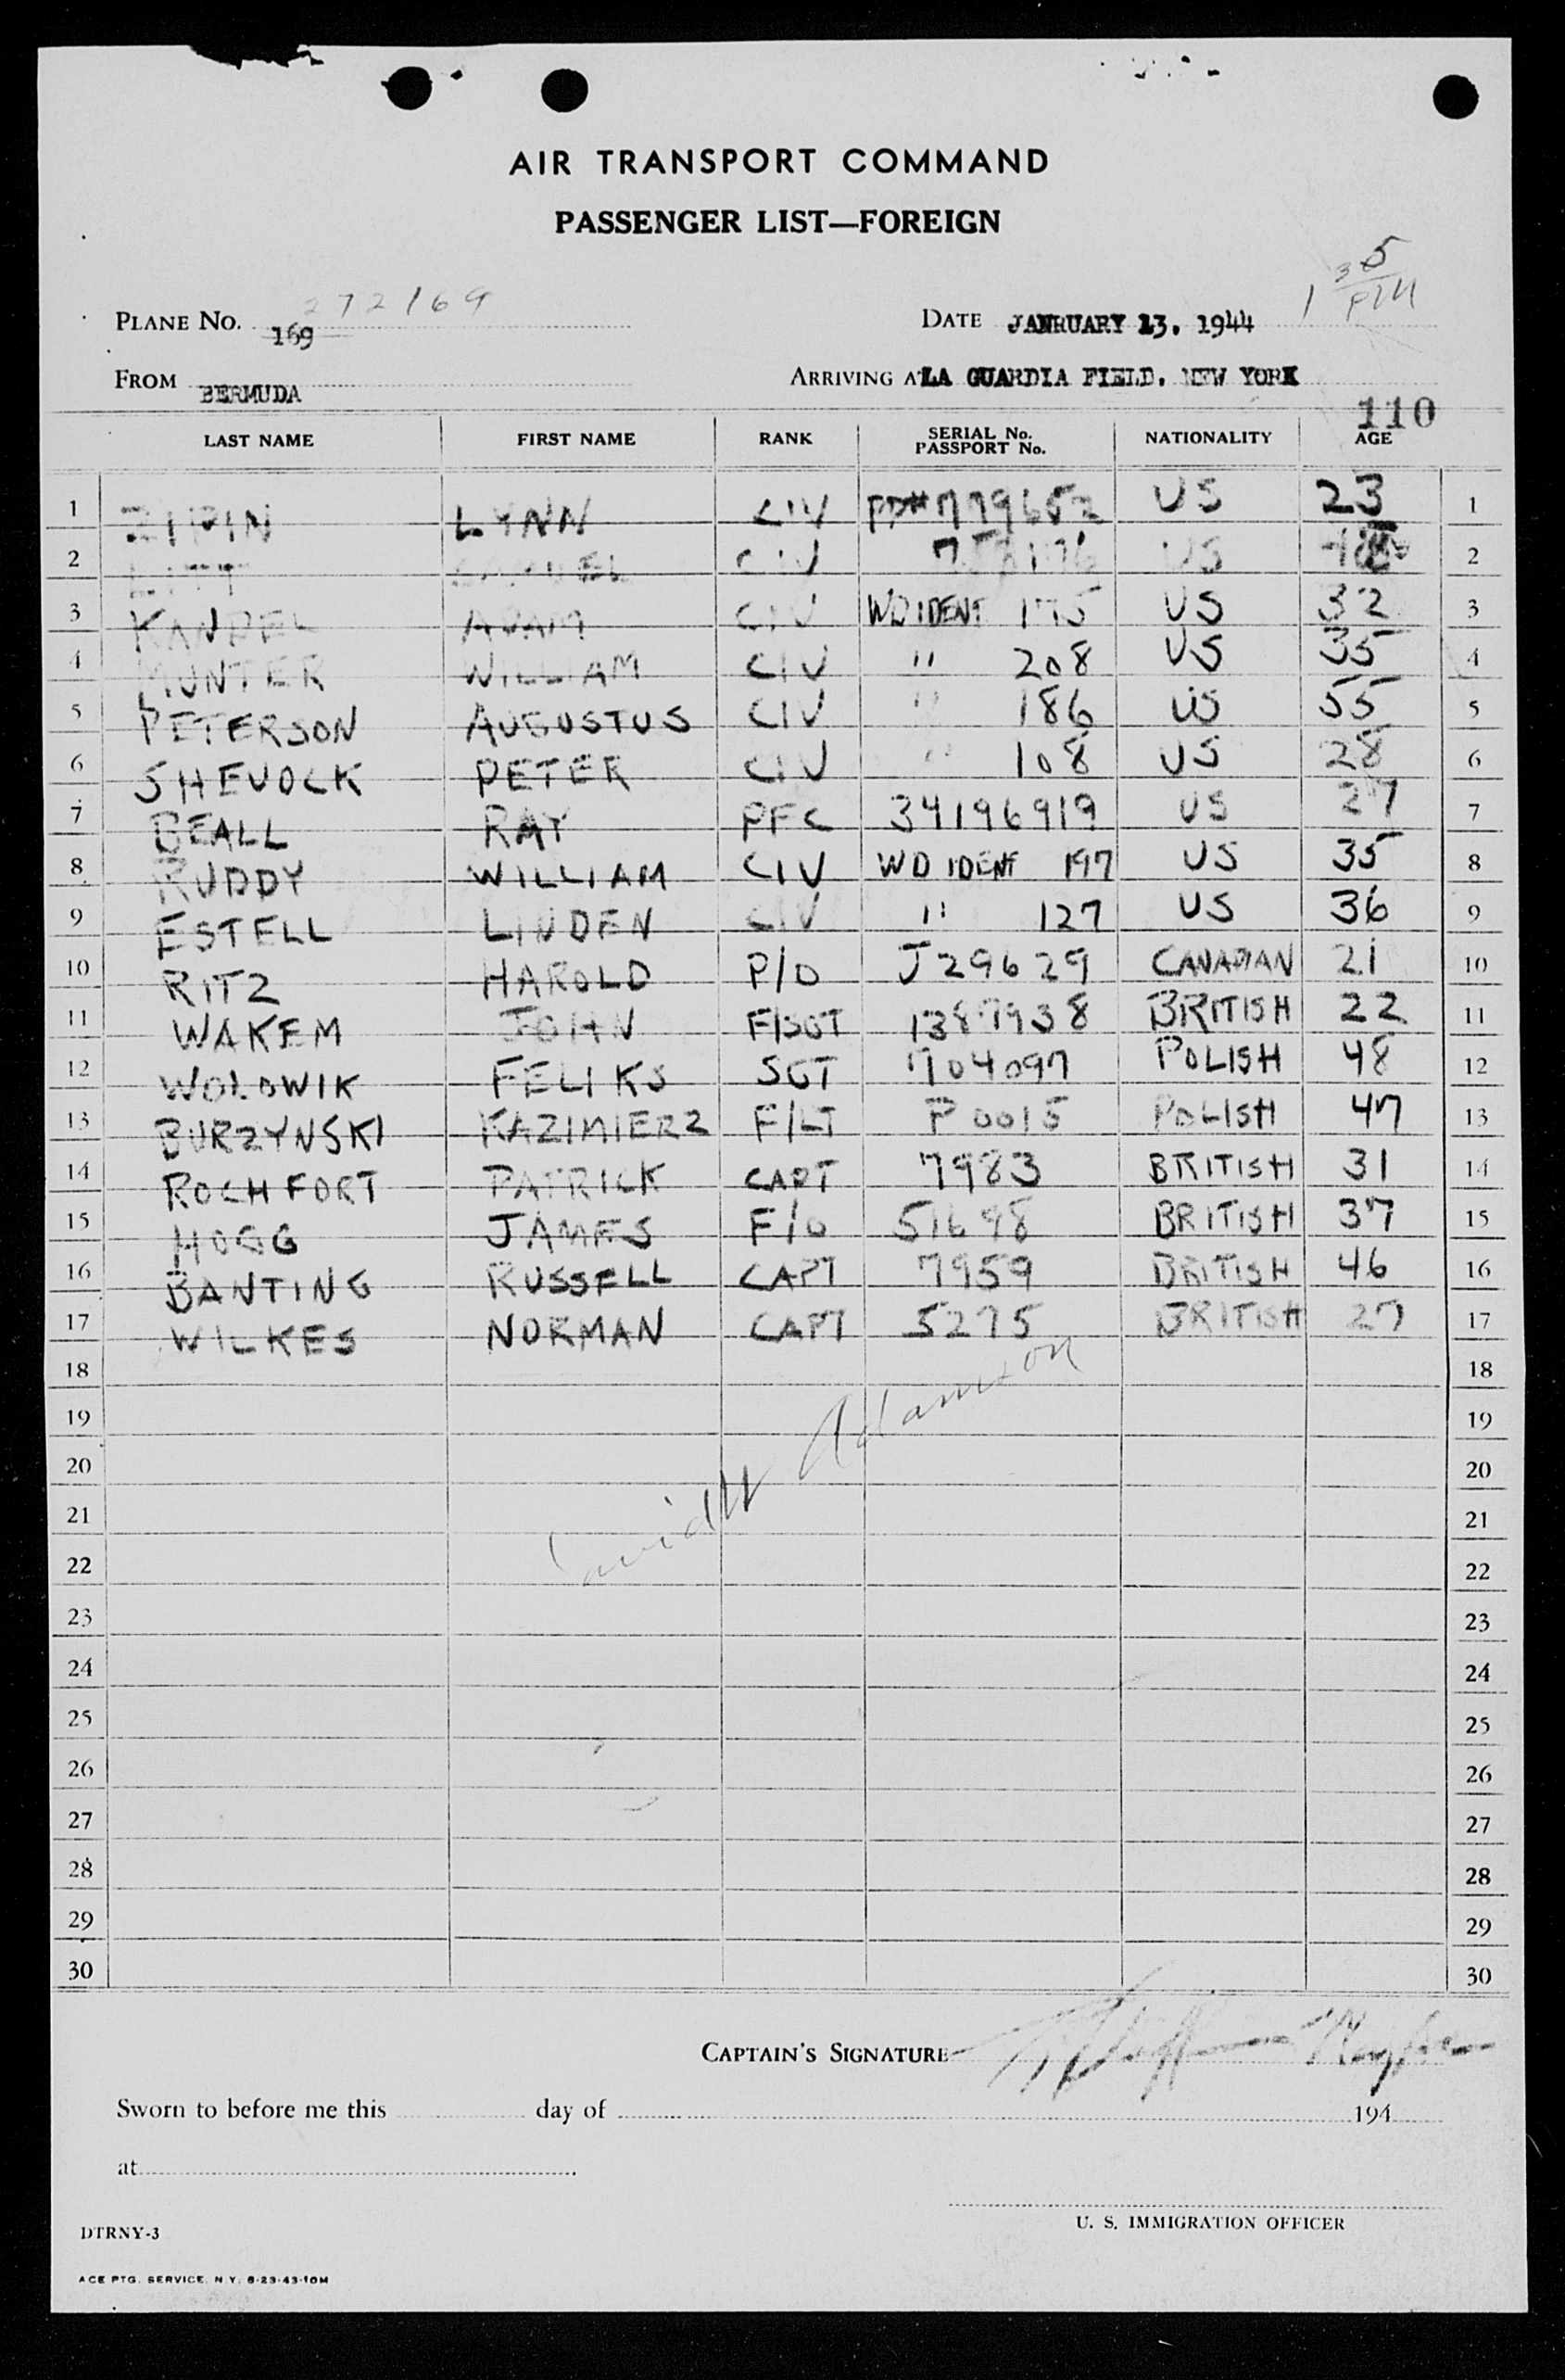 AIR TRANSPORT COMMAND
PASSENGER LIST—FOREIGN
1 35 PM
PLANE No. 169 272169 DATE JANRUARY 13. 1944
FROM BERMUDA ARRIVING AT LA GUARDIA FIELD. NEW YORK
110
LAST NAME FIRST NAME RANK SERIAL No. PASSPORT No. NATIONALITY AGE
1 ZIPIN LYNN CIV PP# 779652 US 23 1
2 CIV US 2
3 KANDEL ADAM CIV WD IDENT 175 US 32 3
4 MUNTER WILLIAM CIV " 208 US 35 4
5 PETERSON AUGUSTUS CIV " 186 US 55 5
6 SHEVOCK PETER CIV " 108 US 28 6
7 BEALL RAY PFC 34196919 US 27 7
8 RUDDY WILLIAM CIV WD IDENT 197 US 35 8
9 ESTELL LINDEN CIV " 127 US 36 9
10 RITZ HAROLD P/O J29629 CANADIAN 21 10
11 WAKEM JOHN F/SGT 1387938 BRITISH 22 11
12 WOLOWIK FELIKS SGT 704097 POLISH 48 12
13 BURZYNSKI KAZIMIERZ F/LT P0015 POLISH 47 13
14 ROCHFORT PATRICK CAPT 7983 BRITISH 31 14
15 HOGG JAMES F/O 51698 BRITISH 37 15
16 BANTING RUSSELL CAPT 7959 BRITISH 46 16
17 WILKES NORMAN CAPT 5275 BRITISH 27 17
18 18
19 19
20 20
21 21
22 22
David W Adamson
23 23
24 24
25 25
26 26
27 27
28 28
29 29
30 30
CAPTAIN'S SIGNATURE
Sworn to before me this day of 194
at
U. S. IMMIGRATION OFFICER
DTRNY-3
ACE PTG. SERVICE. N.Y. 8-23-43-10M